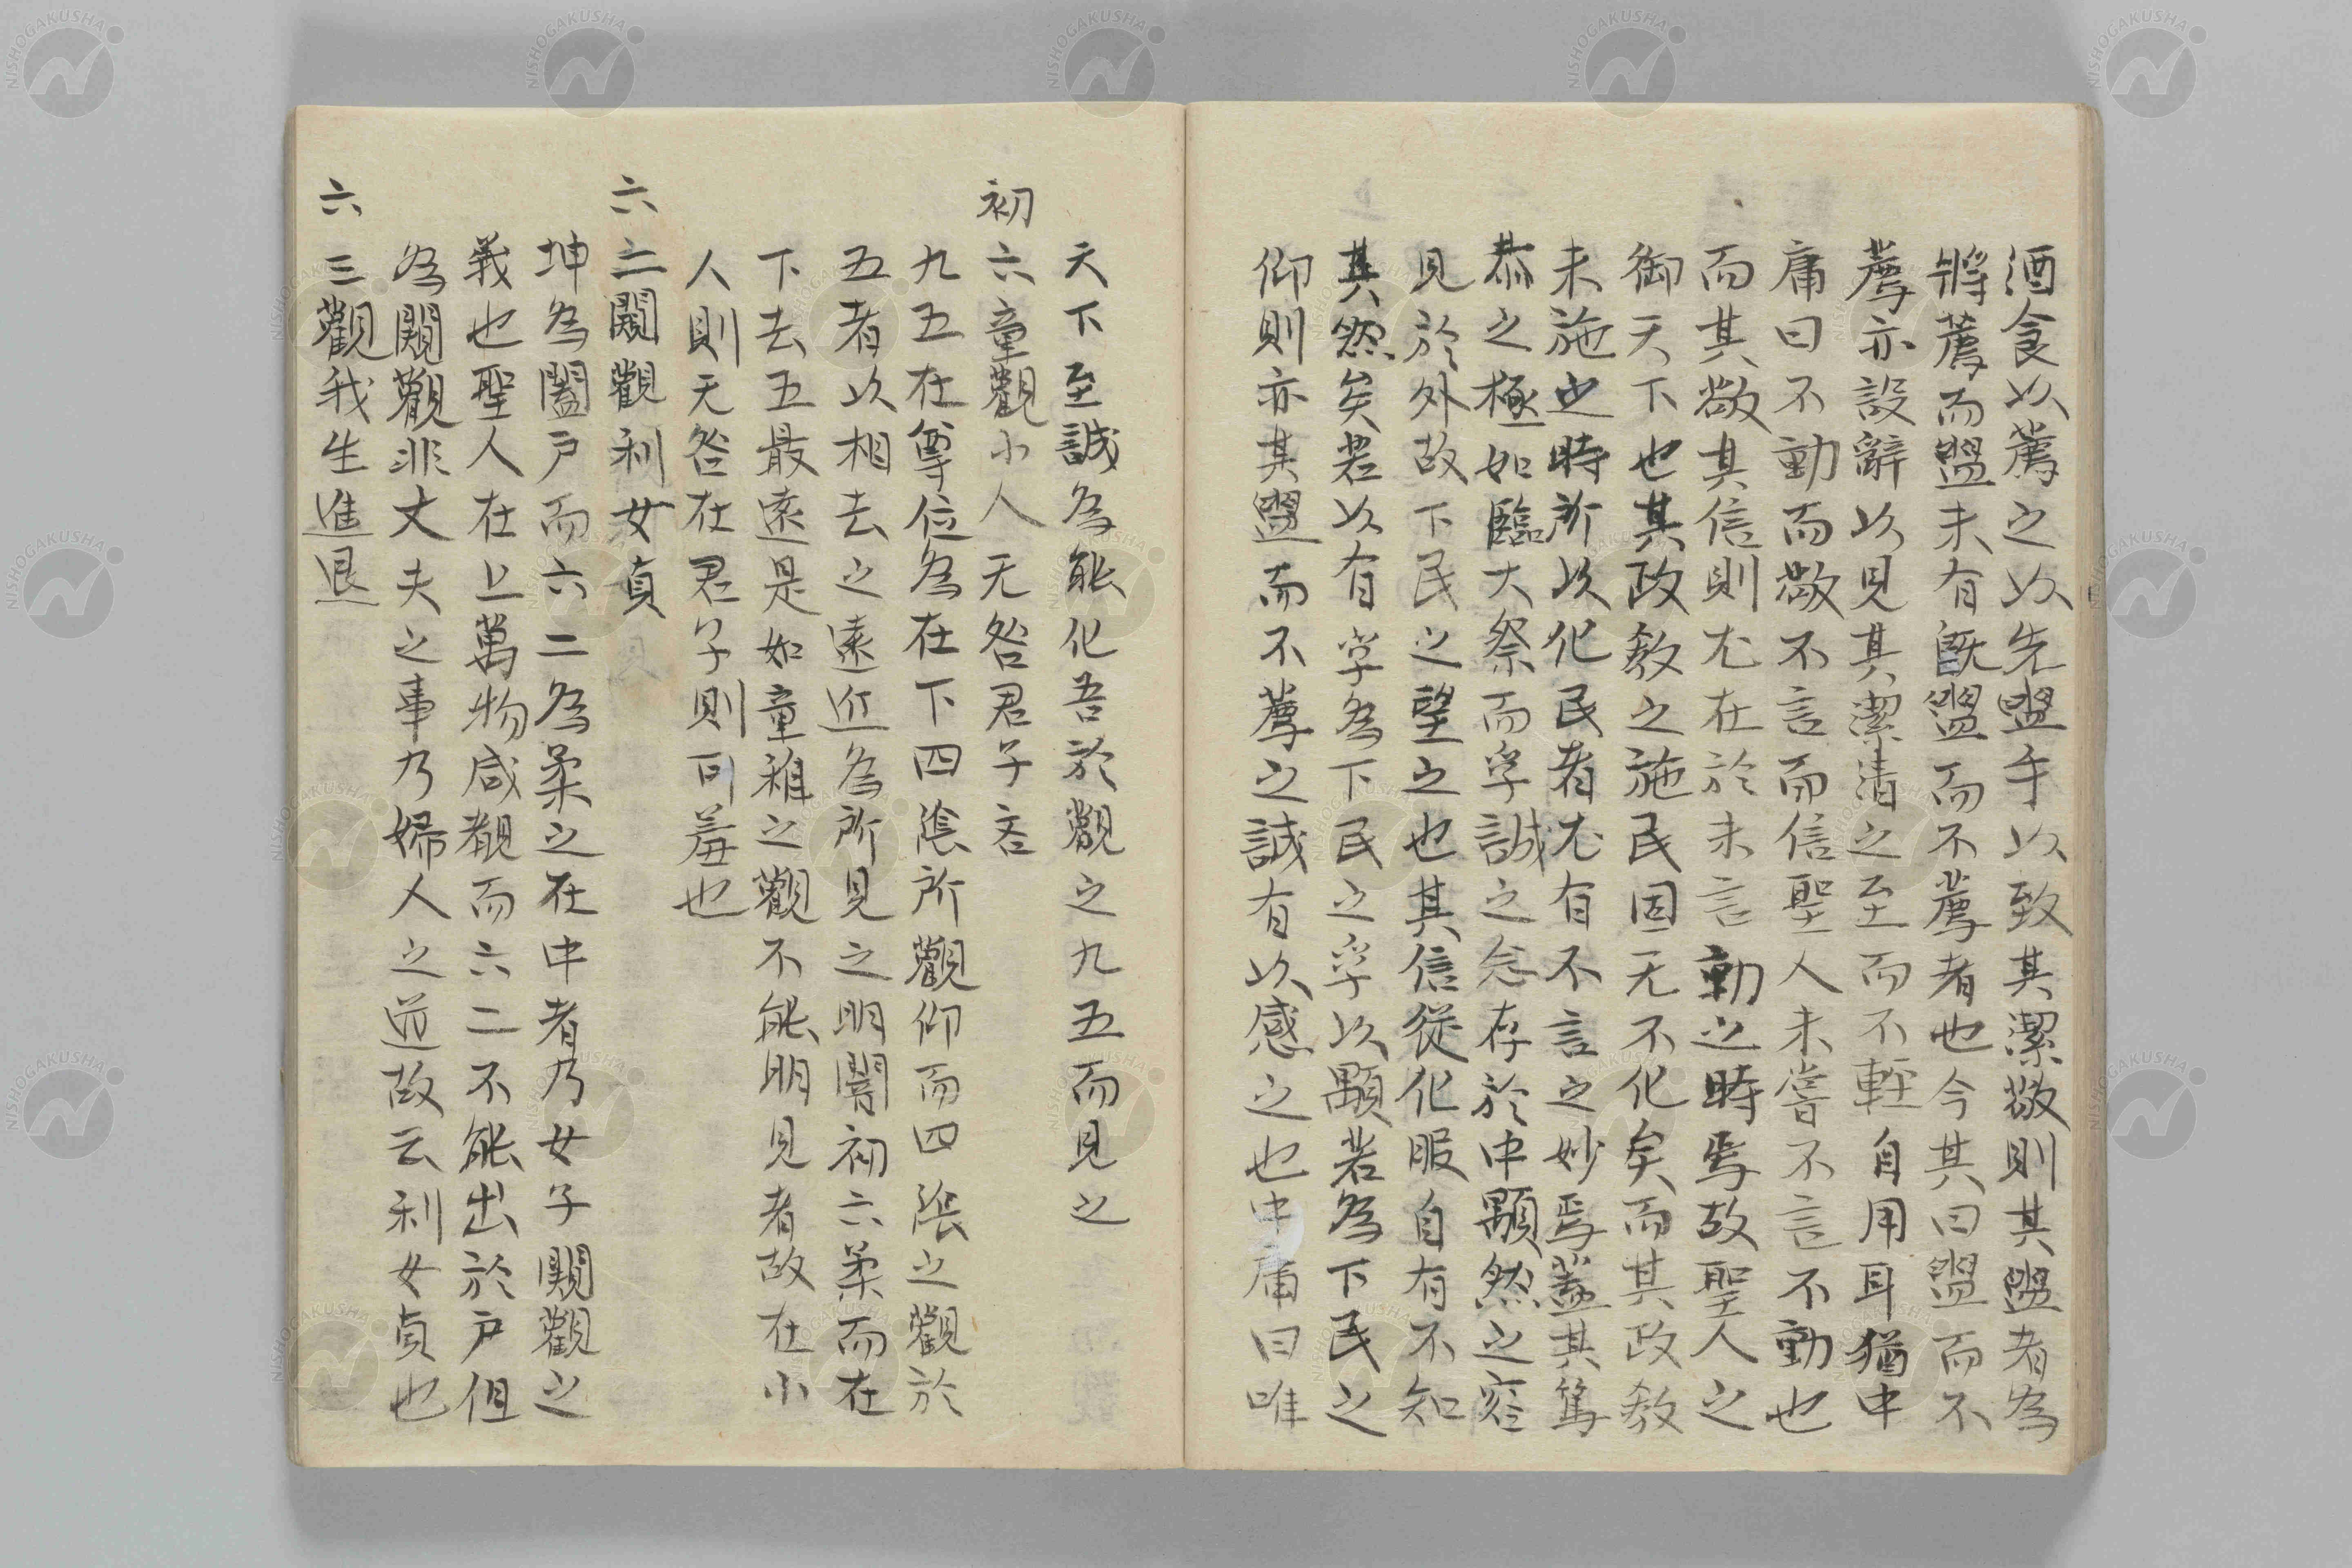 酒食以薦之以先盥手以致其潔敬則其盥者為
將薦而盥未有既盥而不薦者也今其曰盥而不
薦亦設辭以見其潔清之至而不輕自用耳猶中
庸曰不動而敬不言而信聖人未嘗不言不動也
而其敬其信則尤在於未言動之時焉故聖人之
御天下也其政教之施民固无不化矣而其政教
未施之時所以化民者尤有不言之妙焉蓋其篤
恭之極如臨大祭而孚誠之念存於中顒然之容
見於外故下民之望之也其信從化服自有不知
其然矣若以有孚為下民之孚以顒若為下民之
仰則亦其盥而不薦之誠有以感之也中庸曰唯
天下至誠為能化吾於觀之九五而見之
初六童觀小人无咎君子吝
九五在尊位為在下四陰所觀仰而四陰之觀於
五者以相去之遠近為所見之明闇初六柔而在
下去五最遠是如童稚之觀不能明見者故在小
人則无咎在君子則可羞也
六二闚觀利女貞
坤為闔戶而六二為柔之在中者乃女子闚觀之
義也聖人在上萬物咸觀而六二不能出於戶但
為闚觀非丈夫之事乃婦人之道故云利女貞也
六三觀我生進退
NISHOGAKUSHA